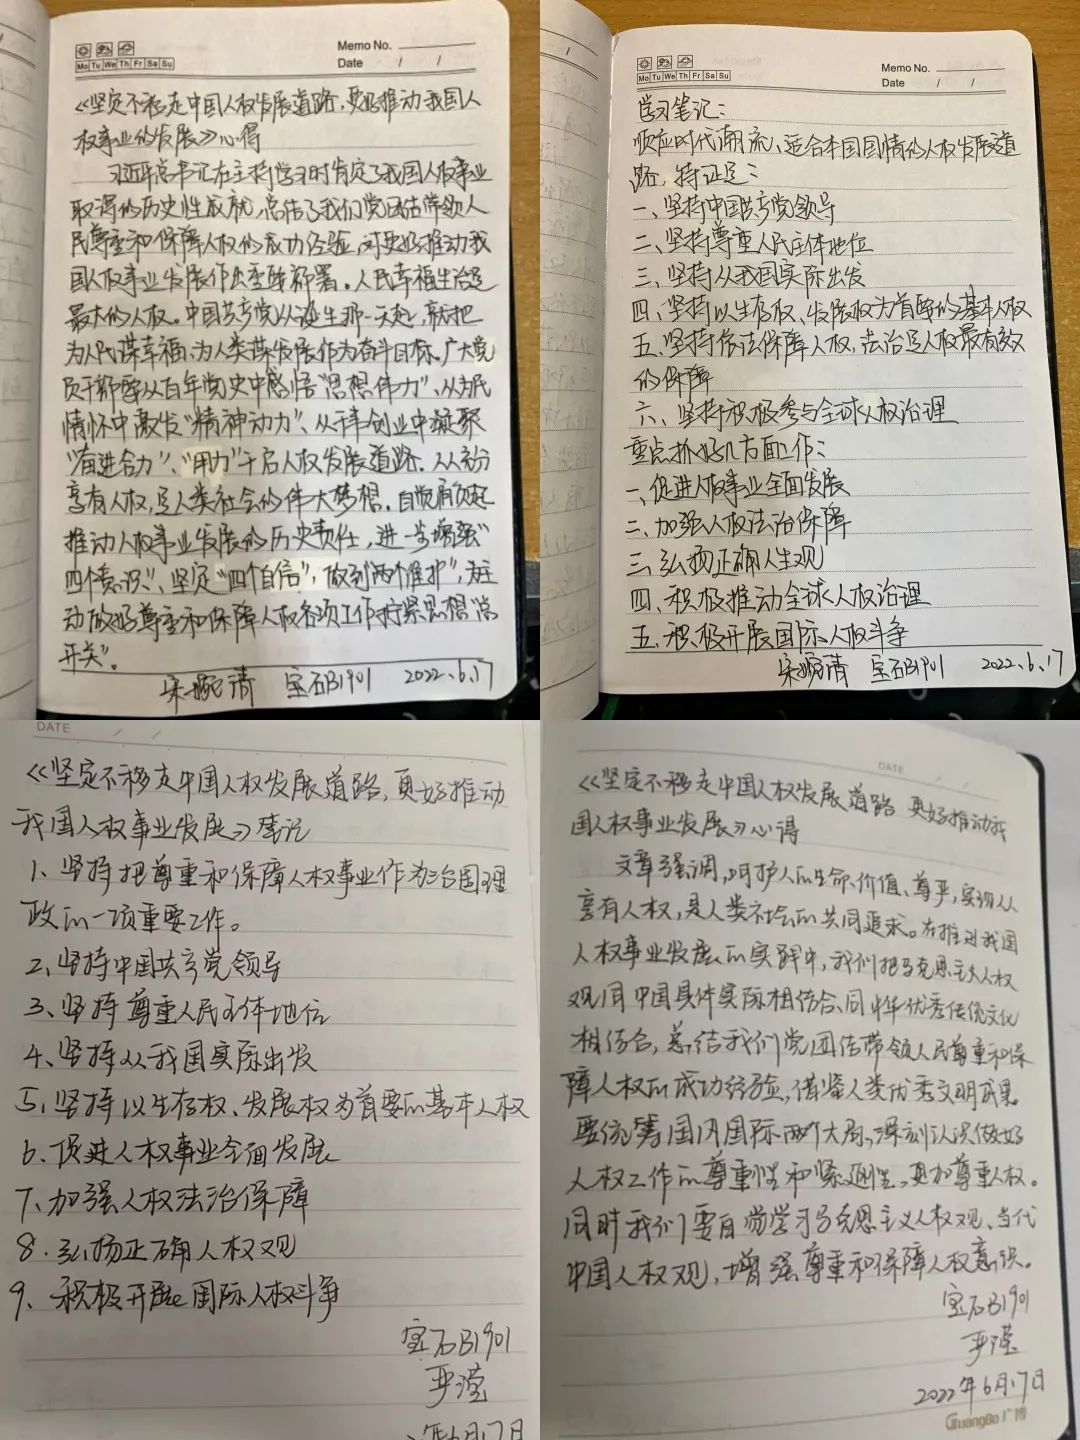 Memo No.
Mo Tu We Th Fr Sa Su
Date / /
《坚定不移走中国人权发展道路,更好推动我国人
权事业的发展》心得
习近平总书记在主持学习时肯定了我国人权事业
取得的历史性成就,总结了我们党团结带领人
民尊重和保障人权的成功经验,对更好推动我
国人权事业发展作出重要部署。人民幸福生活是
最大的人权。中国共产党从诞生那一天起,就把
为人民谋幸福、为人类谋发展作为奋斗目标。广大党
员干部要从百年党史中感悟"思想伟力"、从为民
情怀中激发"精神动力"、从干事创业中凝聚
"奋进合力"、"用力"于启人权发展道路。人人充分
享有人权,是人类社会的伟大梦想。自觉肩负起
推动人权事业发展的历史责任,进一步增强"
四个意识"、坚定"四个自信",做到"两个维护",主
动做好尊重和保障人权各项工作拧紧思想总
开关"。
宋婉清 宝石B1901 2022.6.17
Memo No.
Mo Tu We Th Fr Sa Su
Date / /
学习笔记:
顺应时代潮流、适合本国国情的人权发展道
路,特证是:
一、坚持中国共产党领导
二、坚持尊重人民主体地位
三、坚持从我国实际出发
四、坚持以生存权、发展权为首要的基本人权
五、坚持依法保障人权,法治是人权最有效
的保障
六、坚持积极参与全球人权治理
重点抓好几方面工作:
一、促进人权事业全面发展
二、加强人权法治保障
三、弘扬正确人生观
四、积极推动全球人权治理
五、积极开展国际人权斗争
宋婉清 宝石B1901 2022.6.17
DATE / /
《坚定不移走中国人权发展道路,更好推动
我国人权事业发展》笔记
1、坚持把尊重和保障人权事业作为治国理
政的一项重要工作。
2、坚持中国共产党领导
3、坚持尊重人民主体地位
4、坚持从我国实际出发
5、坚持以生存权、发展权为首要的基本人权
6、促进人权事业全面发展
7、加强人权法治保障
8、弘扬正确人权观
9、积极开展国际人权斗争
宝石B1901
严滢
年6月17日
DATE / /
《坚定不移走中国人权发展道路 更好推动我
国人权事业发展》心得
文章强调,呵护人的生命、价值、尊严,实现人人
享有人权,是人类社会的共同追求。在推进我国
人权事业发展的实践中,我们把马克思主义人权
观同中国具体实际相结合、同中华优秀传统文化
相结合,总结我们党团结带领人民尊重和保
障人权的成功经验,借鉴人类优秀文明成果。
要统筹国内国际两个大局,深刻认识做好
人权工作的尊重性和紧迫性,更加尊重人权。
同时我们要自觉学习马克思主义人权观、当代
中国人权观,增强尊重和保障人权意识。
宝石B1901
严滢
2022年6月17日
GuangBo广博